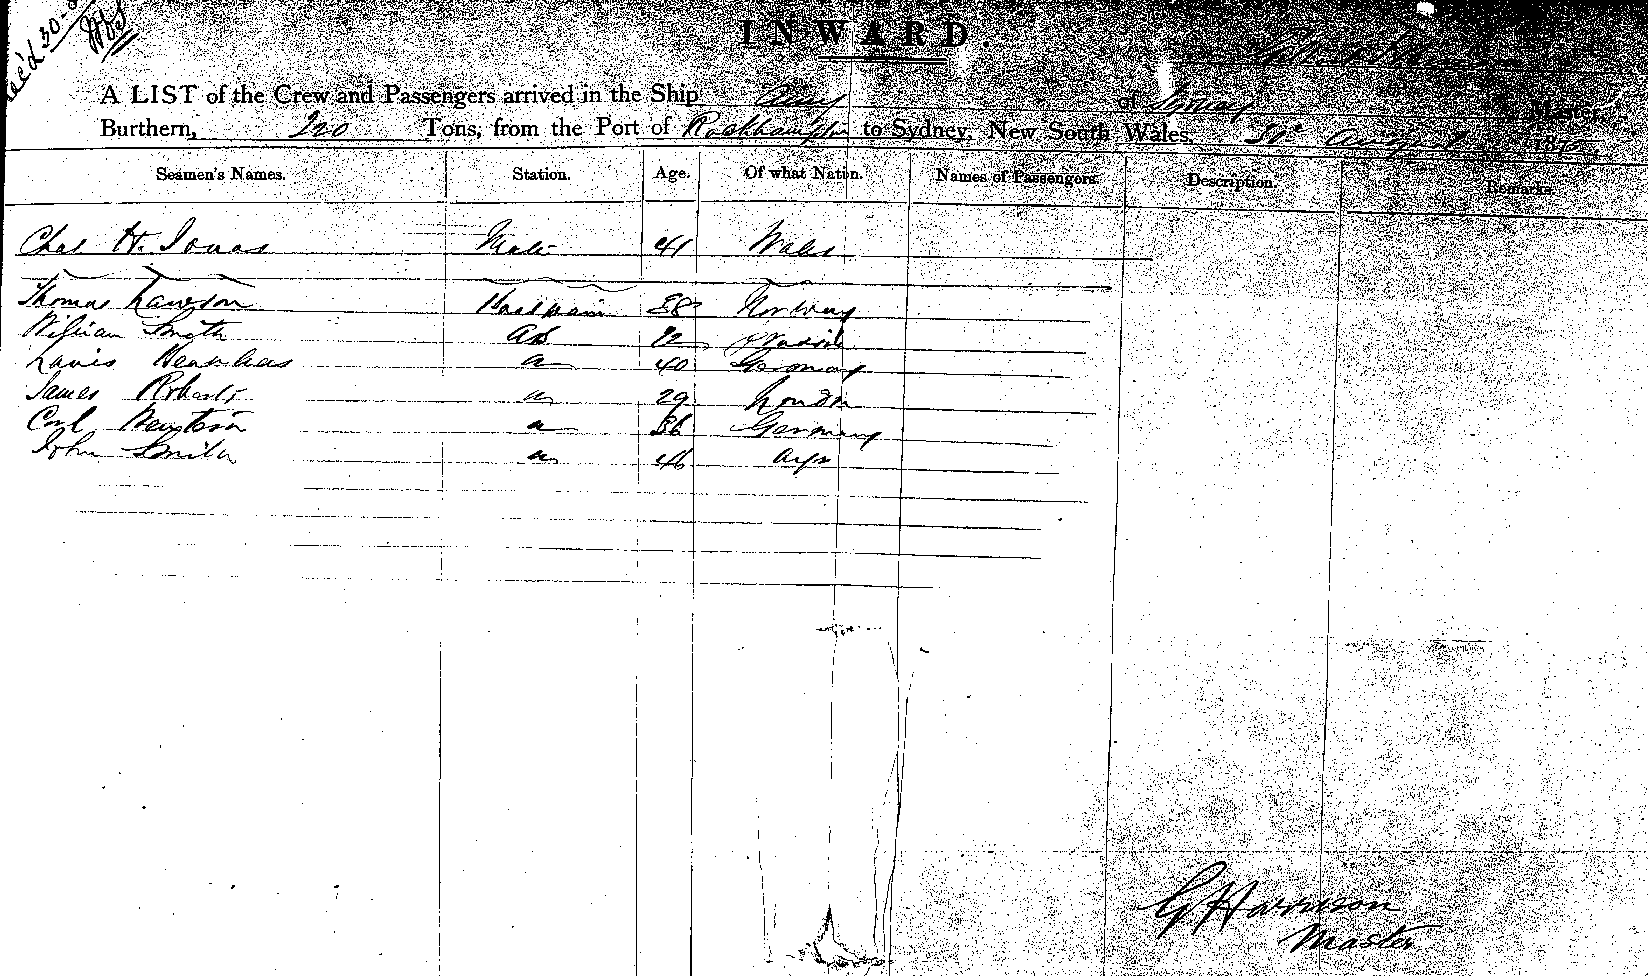 Rec'd 30-
INWARD.
A LIST of the Crew and Passengers arrived in the Ship Amy of Sydney Master,
Burthern, 220 Tons, from the Port of Rockhampton to Sydney, New South Wales August
Seamen's Names. Station. Age. Of what Nation. Names of Passengers. Description. Remarks.
Chas H. Jonas Mate 41 Wales
Thomas Lawson 38 Norway
William Smith AB
Louis a 40 Germany
James Roberts a 29 London
Carl a 36 Germany
John a 46 Ayr
G Harrison
Master